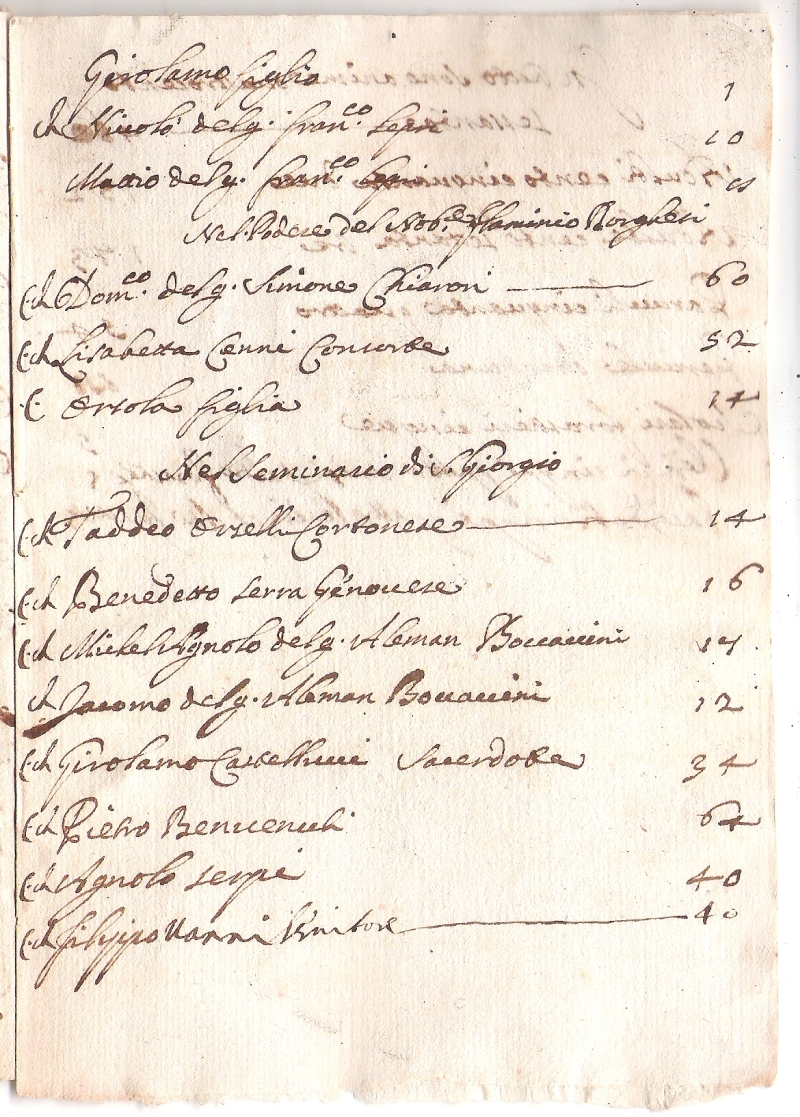 Girolamo figlio 1
ch Niccolò del q. Fran.co Lepri 10
Mattio del q. Fran.co Lepri
Nel Podere del Nob.e Flaminio Borghesi
C. ch Dom.co del q. Simone Chiaroni 60
C. ch Lisabetta Cenni Consorte 52
C. Orsola figlia 14
Nel Seminario di S. Giorgio
C. ch Taddeo Orselli Cortonese 14
C. ch Benedetto Serra Genovese 16
C. ch Michel Agnolo del q. Aleman Boccaccini 17
ch Jacomo del q. Aleman Boccaccini 12
C. ch Girolamo Castellucci Sacerdote 34
C. ch Pietro Benvenuti 64
C. ch Agnolo Serpi 40
C. ch Filippo Vanni 40